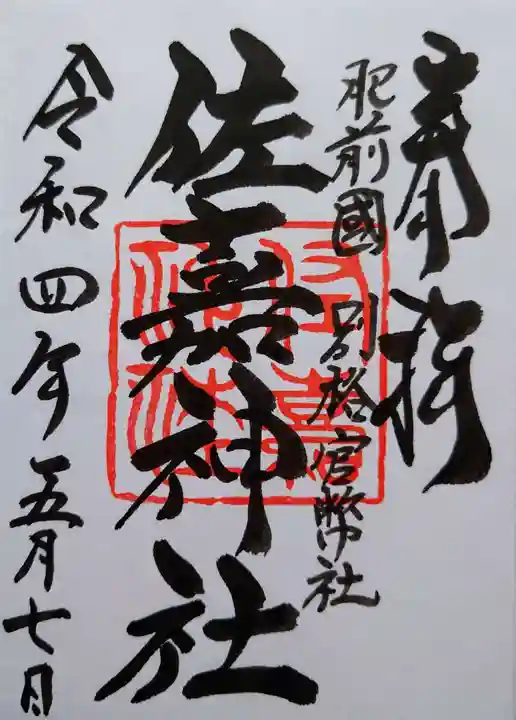 奉拝
肥前國 別格官幣社
佐嘉神社
令和四年五月七日
佐嘉神社